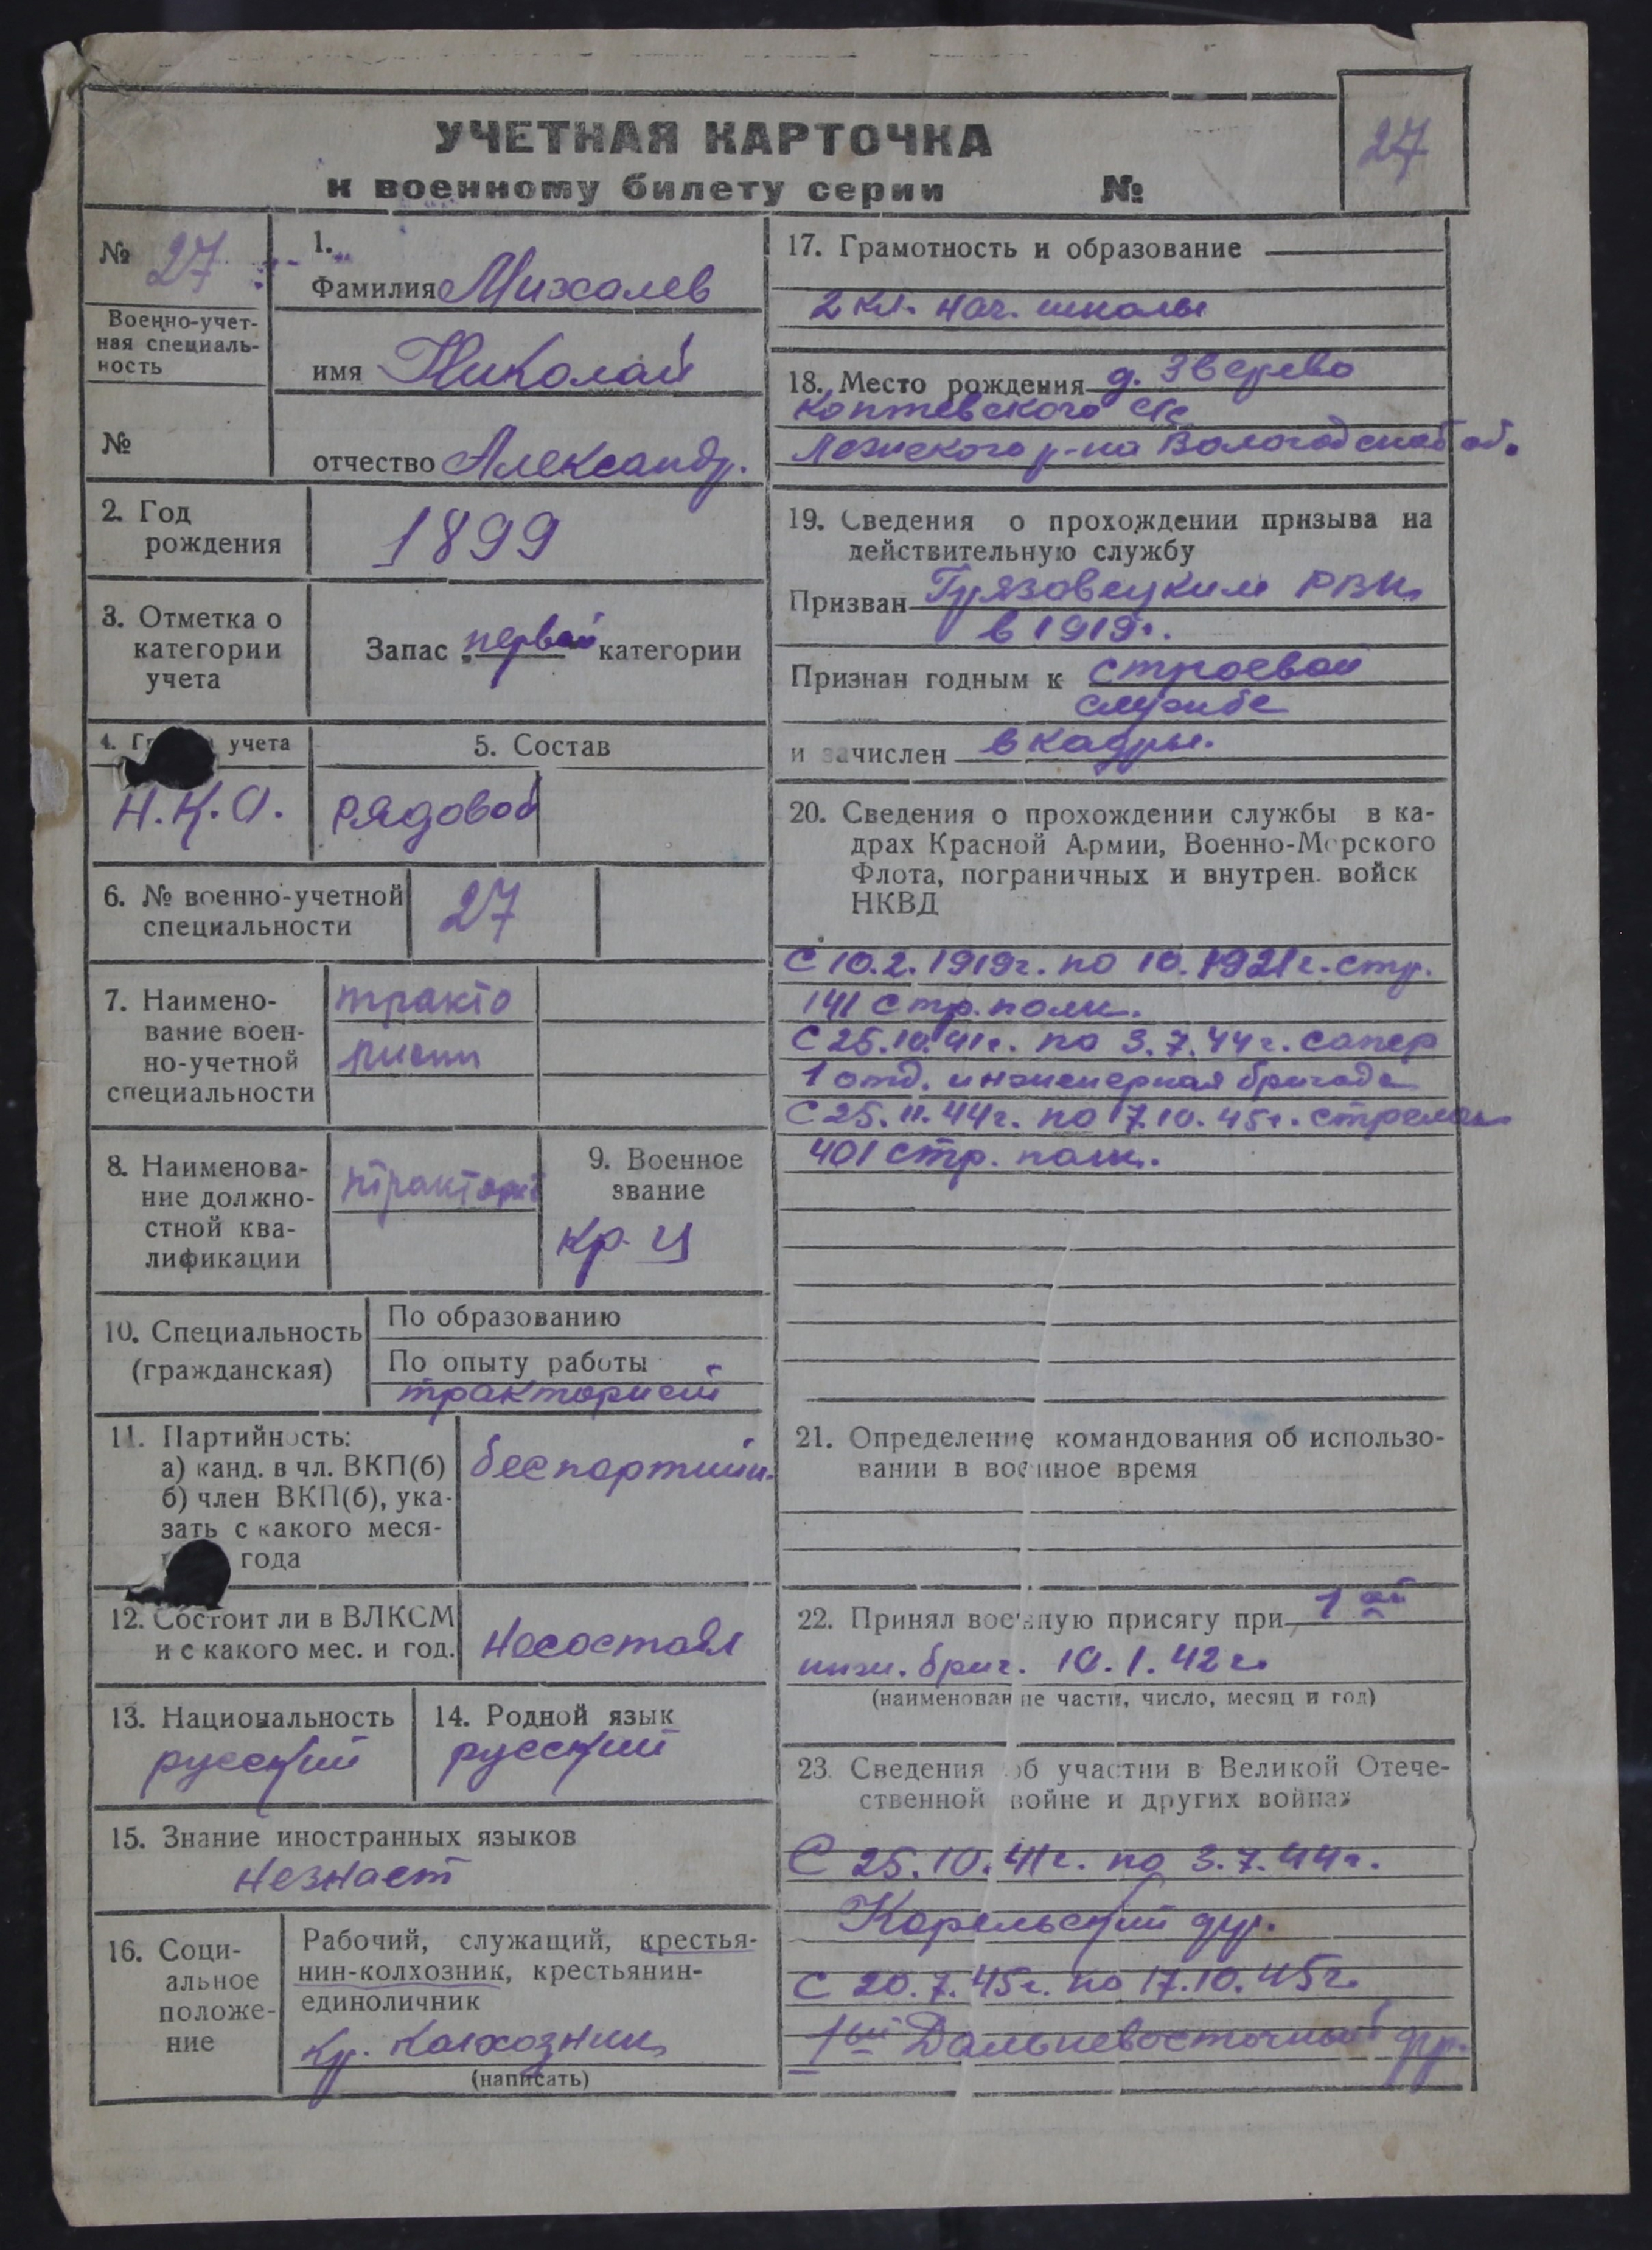 УЧЕТНАЯ КАРТОЧКА
к военному билету серии №
27
№ 27
Военно-учет-
ная специаль-
ность
№
1.
Фамилия Михалев
имя Николай
отчество Александр.
2. Год
рождения
1899
3. Отметка о
категории
учета
Запас первой категории
4. учета
Н.К.О.
5. Состав
рядовой
6. № военно-учетной
специальности
27
7. Наимено-
вание воен-
но-учетной
специальности
тракто
ристы
8. Наименова-
ние должно-
стной ква-
лификации
9. Военное
звание
кр-ц
10. Специальность
(гражданская)
По образованию
По опыту работы
тракторист
11. Партийность:
а) канд. в чл. ВКП(б)
б) член ВКП(б), ука-
зать с какого меся-
года
беспартийн.
12. Состоит ли в ВЛКСМ
и с какого мес. и год.
Несостоял
13. Национальность
русский
14. Родной язык
русский
15. Знание иностранных языков
незнает
16. Соци-
альное
положе-
ние
Рабочий, служащий, крестья-
нин-колхозник, крестьянин-
единоличник
кр. колхозник
(написать)
17. Грамотность и образование
2 кл. нач. школы
18. Место рождения д. Зверево
Коптевского с/с
Лежского р-на Вологодской об.
19. Сведения о прохождении призыва на
действительную службу
Призван Грязовецким РВК
в 1919г.
Признан годным к строевой
службе
и зачислен в кадры.
20. Сведения о прохождении службы в ка-
драх Красной Армии, Военно-Морского
Флота, пограничных и внутрен. войск
НКВД
С 10.2.1919г. по 10.1921г. стр.
141 стр. полк.
С 25.10.41г. по 3.7.44г. сапер
1 отд. инженерная бригада
С 25.11.44г. по 17.10.45г. стрелок
401 стр. полк.
21. Определение командования об использо-
вании в военное время
22. Принял военную присягу при 1ой
инж. бриг. 10.1.42г.
(наименование части, число, месяц и год)
23. Сведения об участии в Великой Отече-
ственной войне и других войнах
С 25.10.41г. по 3.7.44г.
Карельский фр.
С 20.7.45г. по 17.10.45г.
1ый Дальневосточный фр.